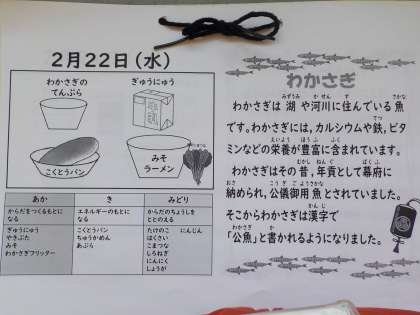 2月22日(水)
わかさぎの
てんぷら
ぎゅうにゅう
こくとうパン
みそ
ラーメン
あか
き
みどり
からだをつくるもとに
なる
エネルギーのもとに
なる
からだのちょうしを
ととのえる
ぎゅうにゅう
やきぶた
みそ
わかさぎフリッター
こくとうパン
ちゅうかめん
あぶら
たけのこ にんじん
はくさい
こまつな
しろねぎ
にんにく
しょうが
わかさぎ
みずうみ か せん す さかな
わかさぎは 湖 や河川に住んでいる 魚
てつ
です。わかさぎには、カルシウムや鉄、ビタ
えいよう ほう ふ ふく
ミンなどの栄養が豊富に含まれています。
むかし ねん ぐ ばく ふ
わかさぎはその 昔、年貢として幕府に
おさ こう ぎ ご ようさかな
納められ、公儀御用 魚とされていました。
かん じ
そこからわかさぎは漢字で
わかさぎ か
「公魚」と書かれるようになりました。